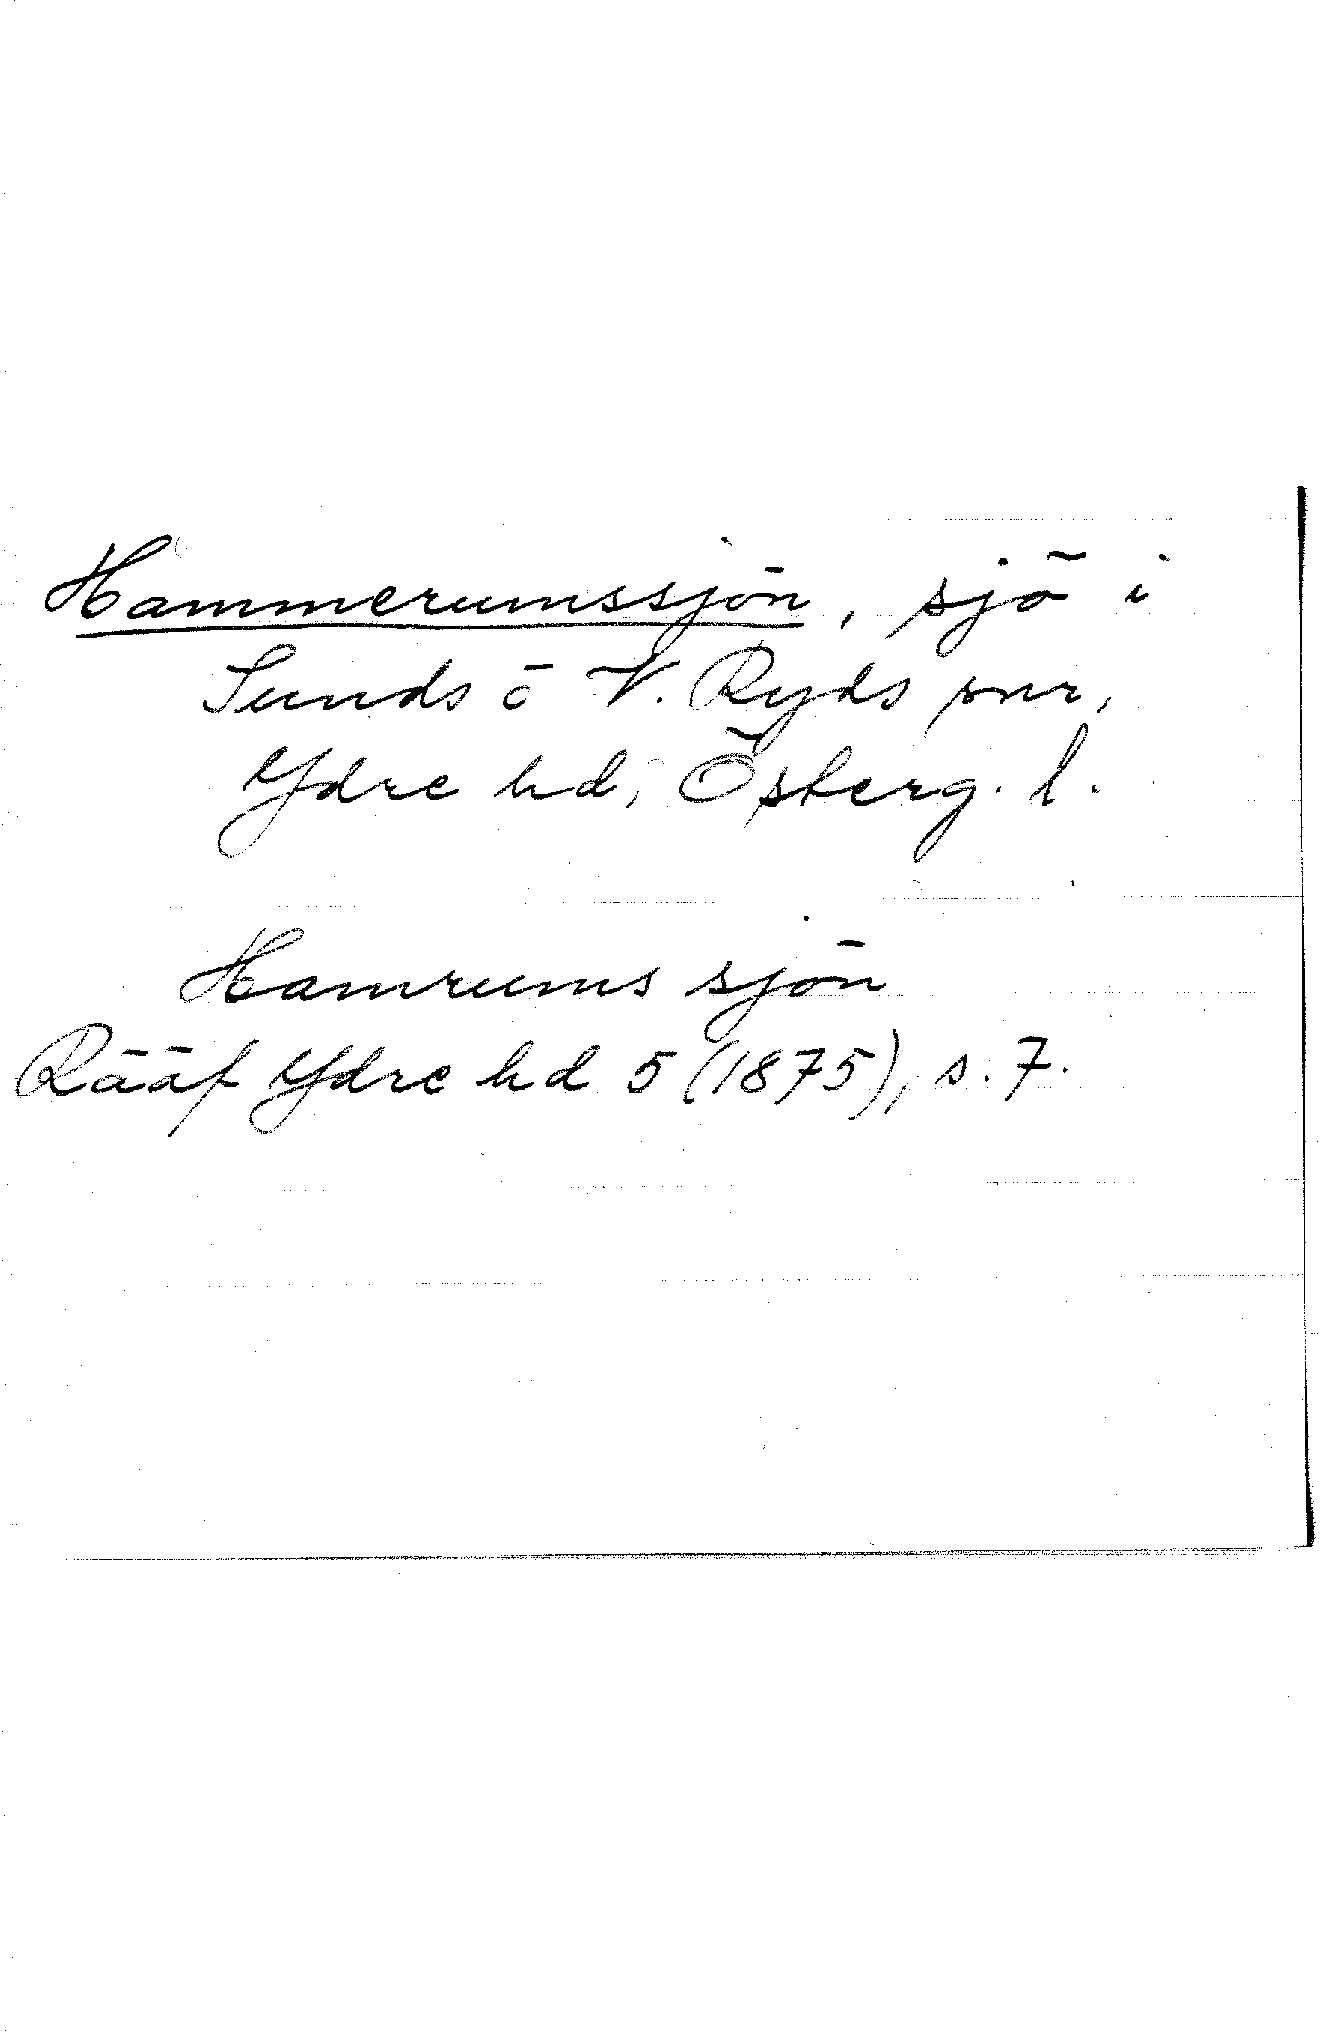 Hammerumssjön, sjö i
Sunds o V. Ryds snr,
Ydre hd, Österg. l.
Hamrums sjön
Rääf Ydre hd 5 (1875), s. 7.